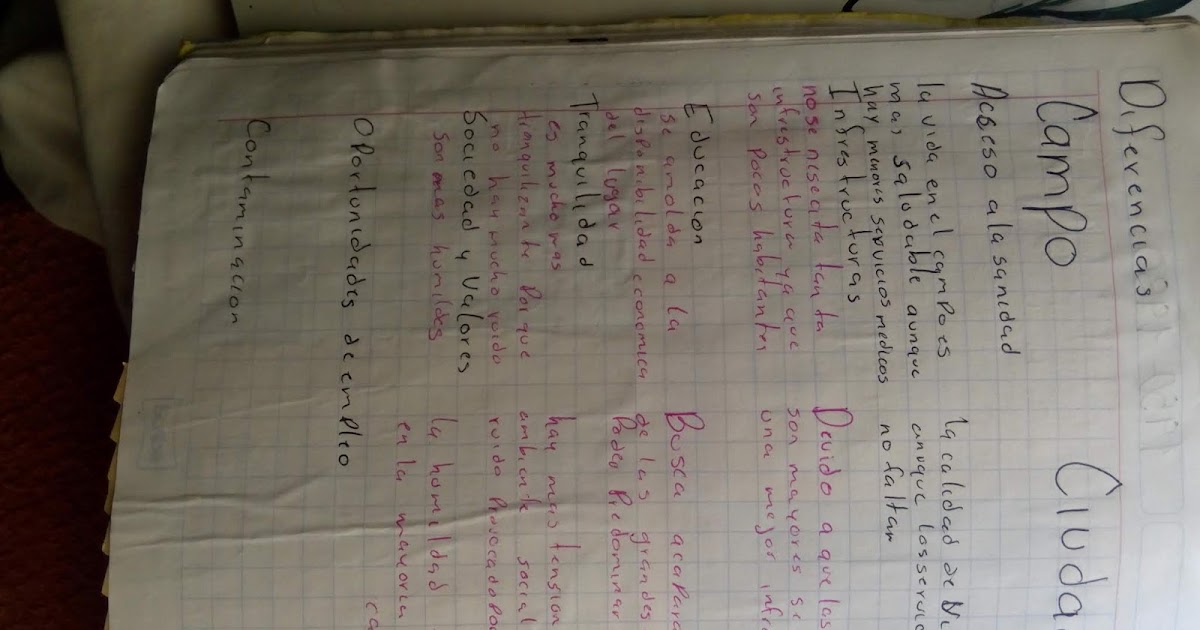 Diferencias
Campo
Ciuda
Acseso a la sanidad
la vida en el campo es
mas saludable aunque
hay menores servicios medicos
la calidad de
anuque los
no faltan
Infrestructuras
nose nisecita tanta
infrestructura ya que
son pocas habitantes
Devido a que las
son mayores se
una mejor infr
Educacion
se amolda a la
disponibilidad economica
del lugar
Busca acapara
de las grandes
Poder Predominar
Tranquilidad
es mucho mas
tranquilizante Porque
no hay mucho ruido
hay mas tension
embiente social
ruido
Sociedad y valores
son mas humildes
la humildad
en la mayoria
ca
Oportunidades de empleo
Contaminacion